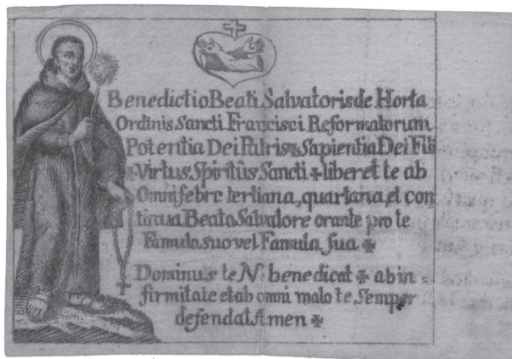 Benedictio Beati Salvatoris de Horta
Ordinis Sancti Francisci Reformatorum
Potentia Dei Patris ✠ Sapientia Dei Filii
✠ Virtus Spiritûs Sancti ✠ liberet te ab
Omni febre tertiana, quartana, et con
tinua Beato Salvatore orante pro te
Famulo suo vel Famula sua ✠
Dominus te N: benedicat ✠ ab in
firmitate et ab omni malo te semper
defendat Amen ✠